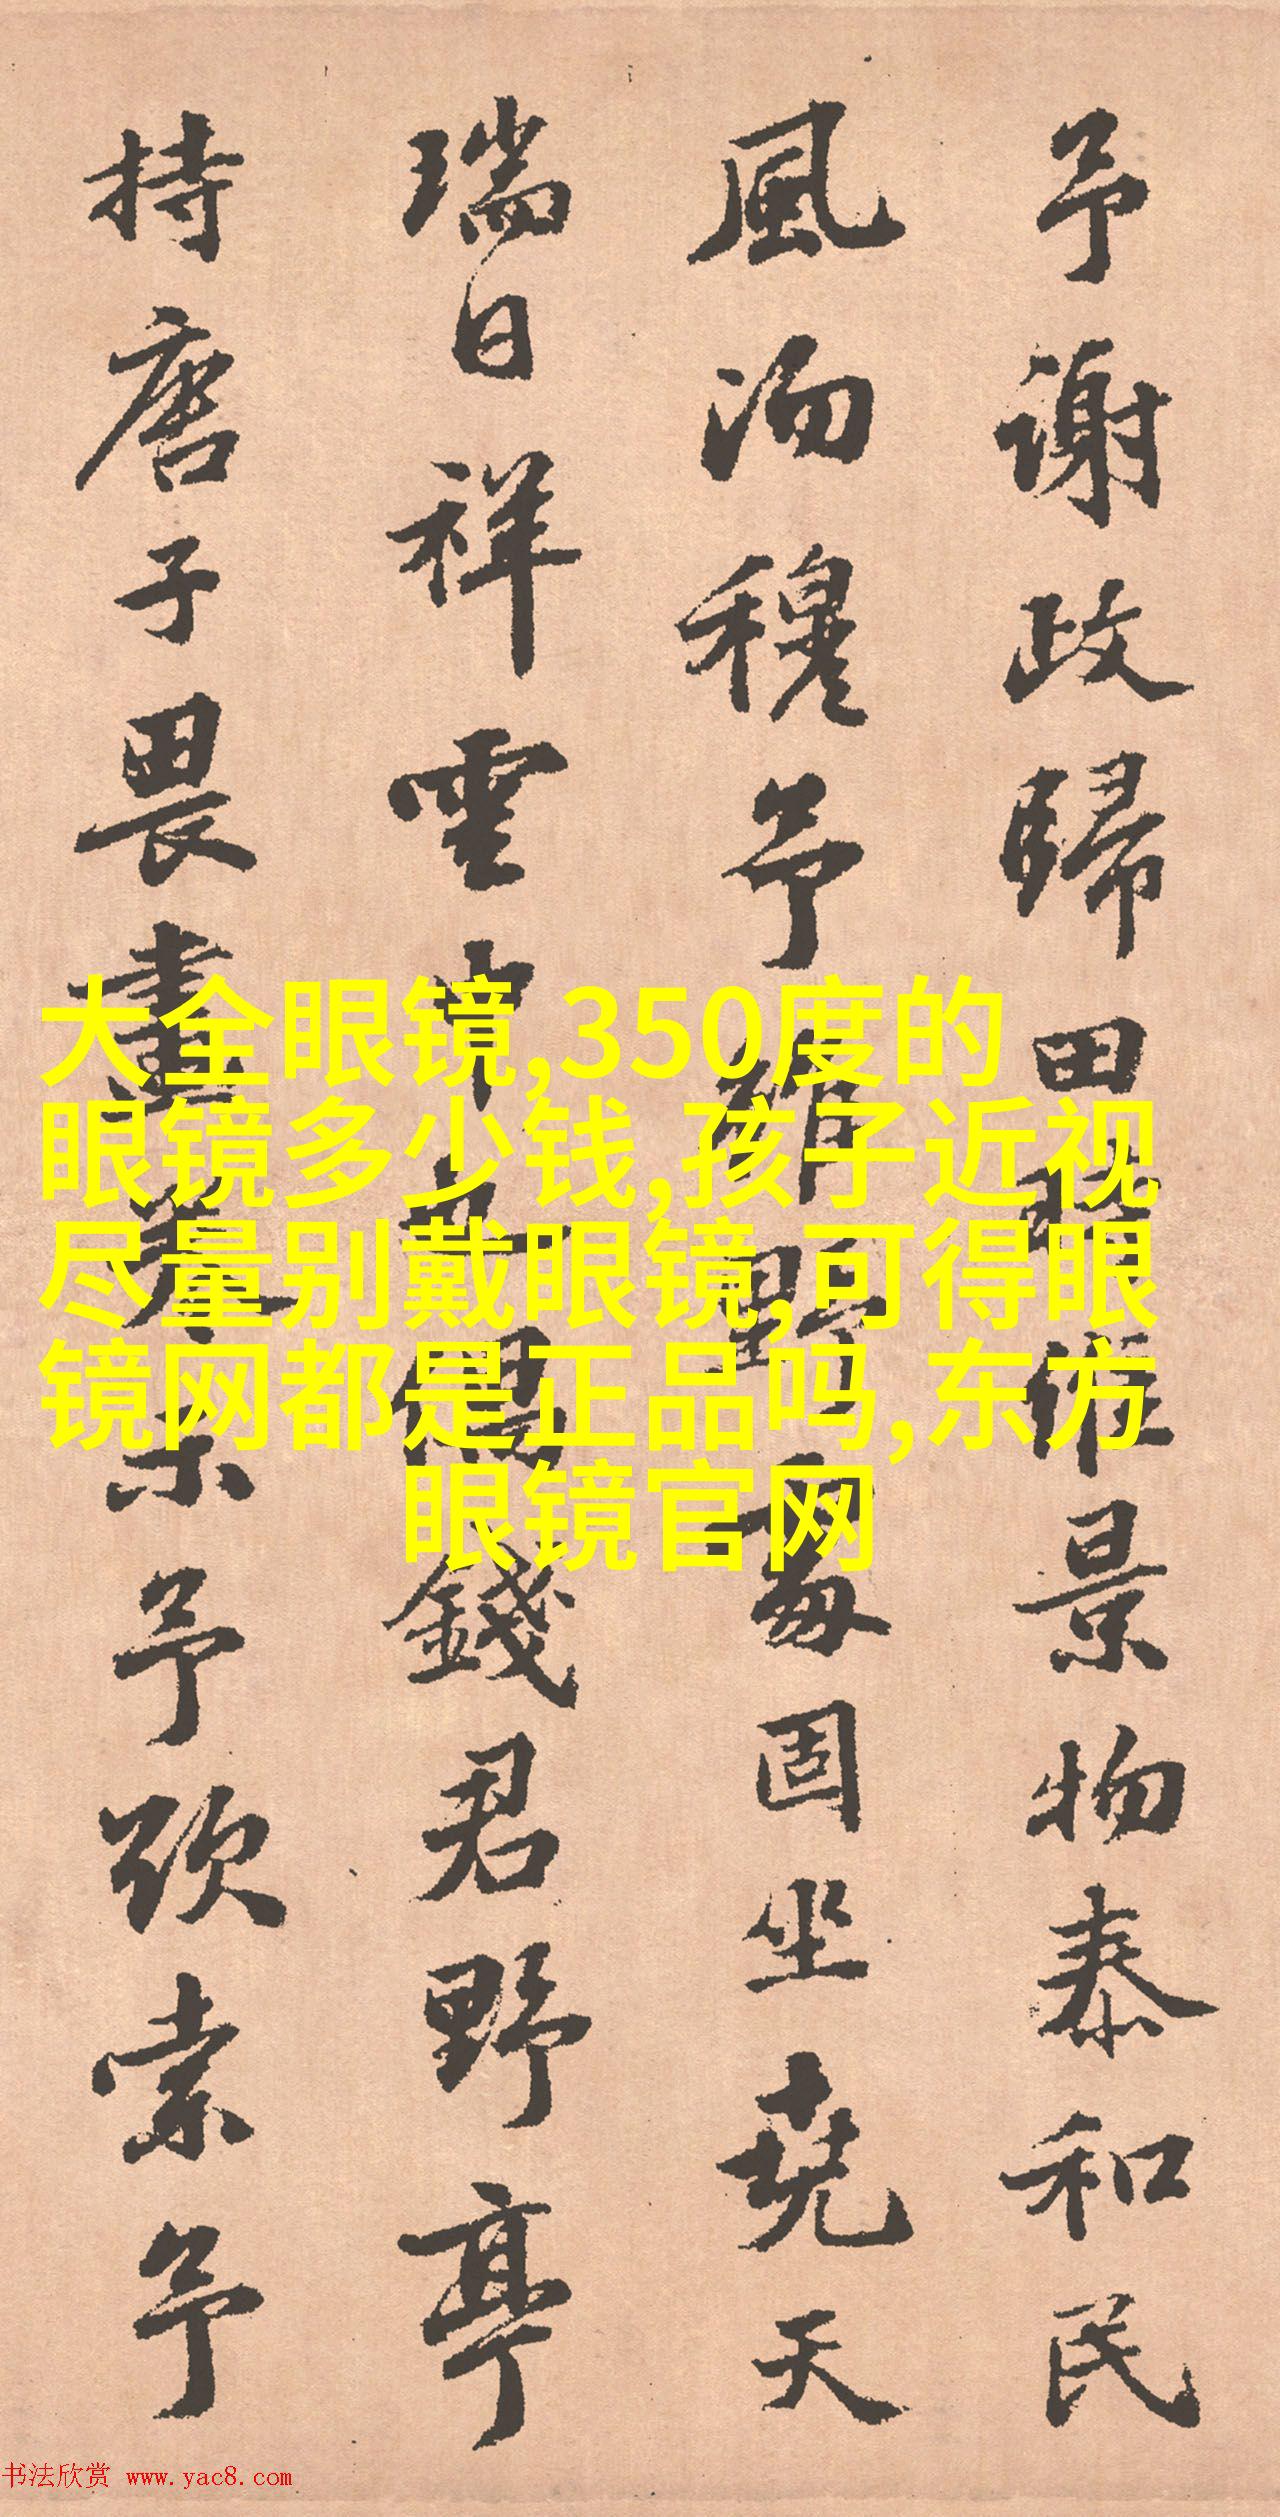 予謝政歸田惟景物泰和民
風沕穆予野固坐堯天
瑞日祥雲中偶錢君野亭
持唐子畏畫卷示予索予
大全眼镜,350度的
眼镜多少钱,孩子近视
尽量别戴眼镜,可得眼
镜网都是正品吗,东方
眼镜官网
书法欣赏 www.yac8.com